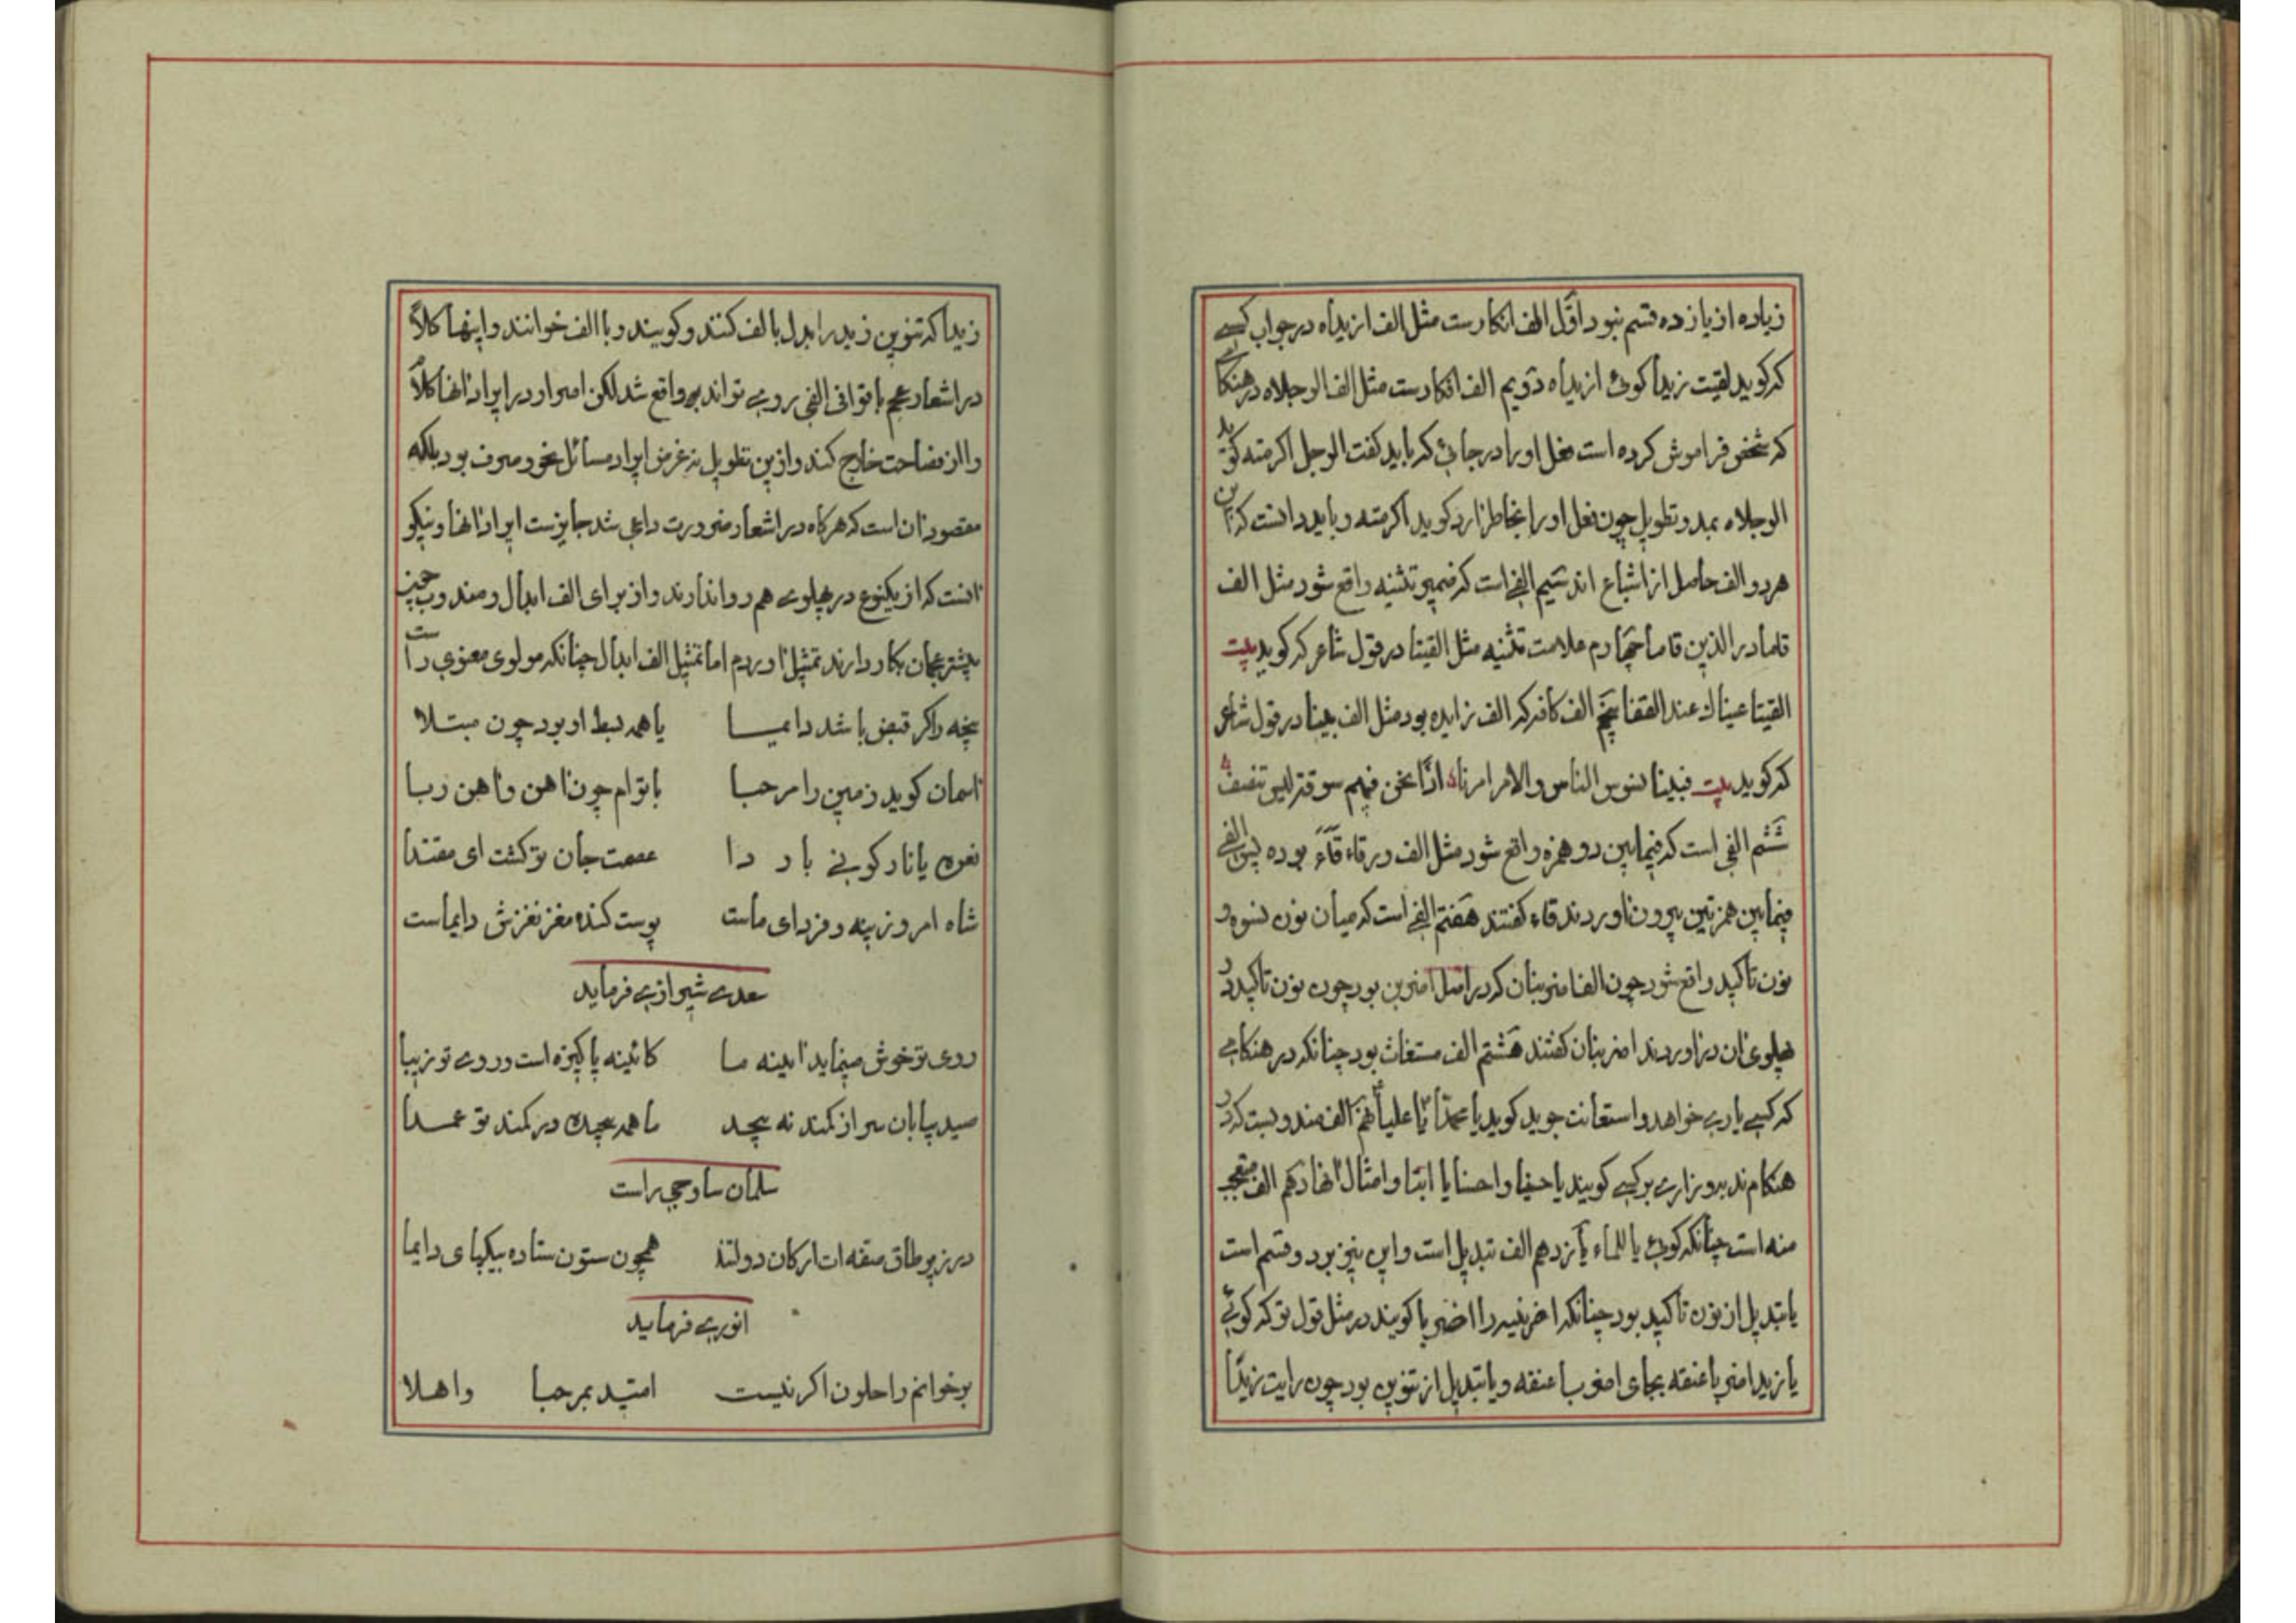 زیاده از یازده قسم نبود اوّل الف انکارست مثل الف ازیداه در جواب کسے
که کوید لقیت زیداً کوئ ازیداه دوّیم الف انکارست مثل الف الرجلاه در هنکامے
که شخص فراموش کرده است فعل او را در جائ که باید کفت الرجل اکرمته کوید
الرجلاه بمد و تطویل چون فعل او را بخاطر آرد کوید اکرمته و باید دانست که این
هر دو الف حاصل از اشباع اند سیّم الفے است که ضمیر تثنیه واقع شود مثل الف
قاما در الذین قاما چهارم علامت تثنیه مثل القیتا در قول شاعر که کوید بیت
القیتا عیناك عند القفا پنجم الف کافه که الف زایده بود مثل الف بینا در قول شاعر
که کوید بیت فبینا نسوس الناس و الامر امرنا اذا نحن فیهم سوقة لیس تنصف
ششم الفی است که فیمابین دو همزه واقع شود مثل الف در قاء بوده پس الفے
فیمابین همزتین بیرون آوردند قاء کفتند هفتم الفی است که میان نون نسوه و
نون تاکید واقع شود چون الف اضربنان که در اصل اضربن بود چون نون تاکید در
پهلوی آن در آوردند اضربنان کفتند هشتم الف مستغاث بود چنانکه در هنکامے
که کسے یارے خواهد و استعانت جوید کوید یا محمدا یا علیا نهم الف مندوبست که در
هنکام ندبه و زارے بر کسے کویند یا حسینا وا حسنا یا ابتا و امثال آنها دهم الف متعجب
منه است چنانکه کوئے یا للماء یازدهم الف تبدیل است و این نیز بر دو قسم است
یا تبدیل از نون تاکید بود چنانکه اضربن را اضربا کویند در مثل قول تو که کوئے
یا زید اضربا عنقه بجای اضربن عنقه و یا تبدیل از تنوین بود چون رایت زیدا
زیدا که تنوین زید را بدل بالف کنند و کویند و با الف خوانند و اینها کلاً
در اشعار عجم با قوافی الفی روے تواند بر واقع شد لکن اصرار در ایراد آنها کلام
را از فصاحت خارج کند و ازین تطویل نه غرض ایراد مسائل نحو و صرف بود بلکه
مقصود آن است که هرکاه در اشعار ضرورت داعی شد جایزست ایراد آنها و نیکو
آنست که از یکنوع در پهلوے هم روا ندارند و از برای الف ابدال و مندوب
بیشتر عجمان بکار دارند تمثیل آوردم اما تمثیل الف ابدال چنانکه مولوی معنوی راست
پخه را کر قبض باشد دایمسا یا همه بسط او بود چون مبتلا
آسمان کوید زمین را مرحبا با توام چون آهن و آهن ربا
نعره یا نار کونی بار دا عصمت جان تو کشت ای مقتدا
شاه امروزینه و فردای ماست پوست کنده مغز نغزش دایماست
سعدے شیرازے فرماید
روی تو خوش مینماید آینه ما کائینه پاکیزه است و روے تو زیبا
صید بیابان سر از کمند نه پیچد ما همه پیچیده در کمند تو عمدا
سلمان ساوجی راست
در زیر طاق صفه ات ارکان دولتند همچون ستون ستاده بیکپای دایما
انورے فرماید
بر خوانم را حلون اکر نیست امیّد بمرحبا واهلا